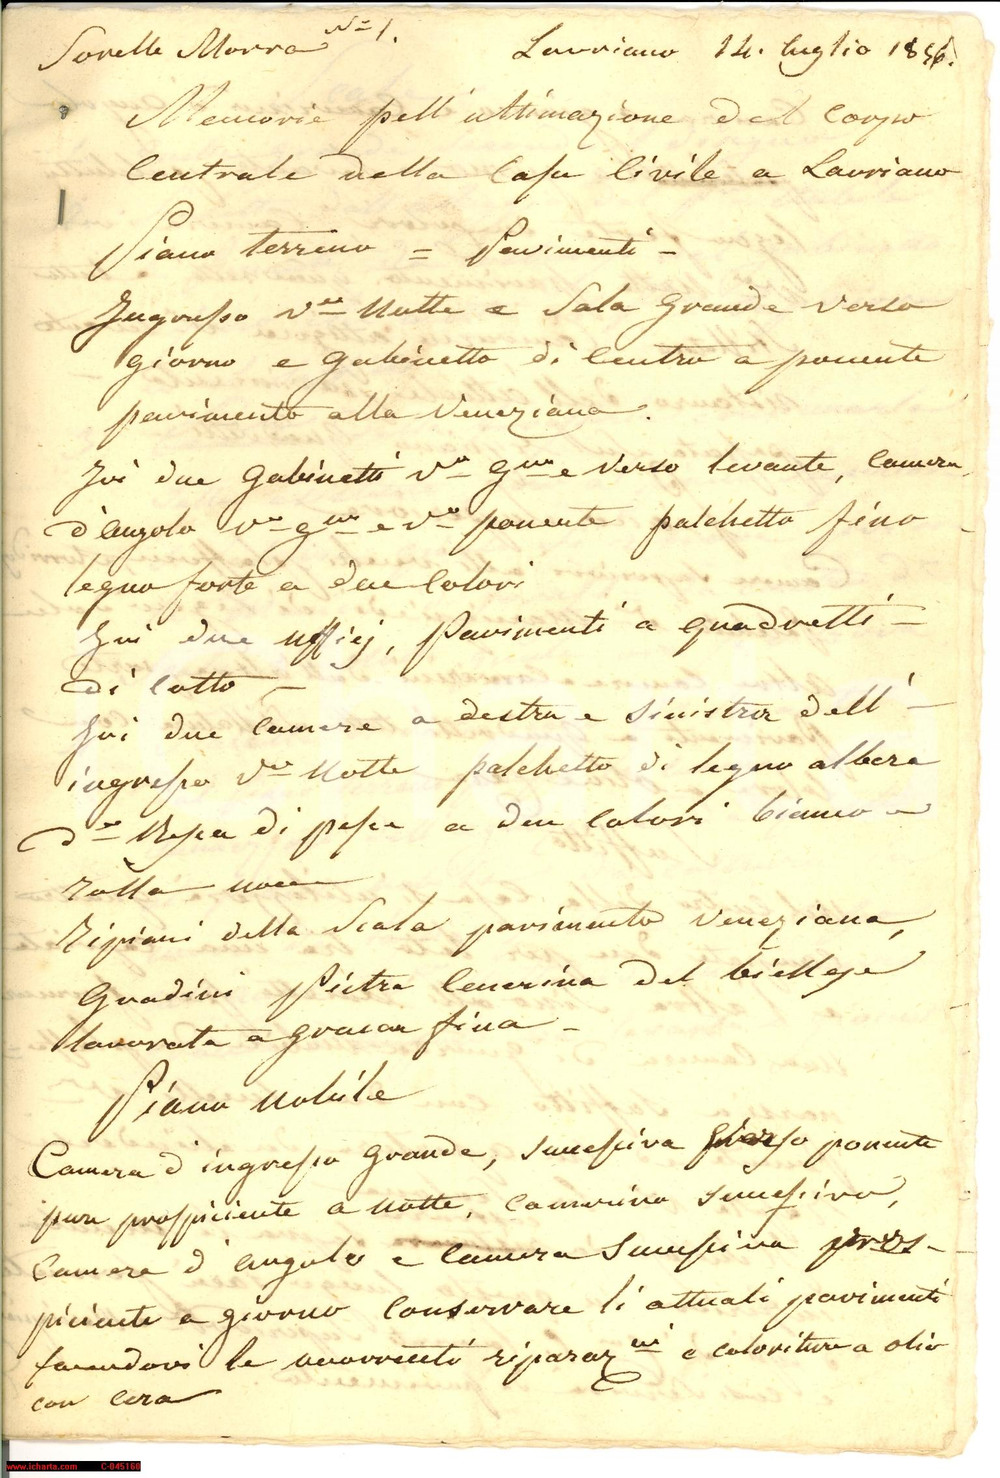 Sorelle Morra N.º 1. Lauriano 14. luglio 1856.
Memorie pell'ultimazione del Corpo
Centrale della Casa Civile a Lauriano
Piano terreno = Pavimenti -
Ingresso v.so Notte e Sala Grande verso
giorno e Gabinetto di Centro a ponente
pavimento alla Veneziana.
Ivi due Gabinetti v.so G.no e verso levante, Camera
d'angolo v.so g.no e v.so ponente palchetto fino -
legno forte a due Colori
Ivi due uffizj, Pavimenti a quadretti -
di Cotto -
Ivi due Camere a destra e sinistra dell' -
ingresso v.so Notte palchetto di legno albera
a due Colori bianco e
noce
Ripiani della Scala pavimento Veneziana,
Gradini Pietra Cenerina del biellese
lavorata a grana fina -
Piano Nobile
Camera d'ingresso Grande, successiva verso ponente
pure prospiciente a Notte, Camerino successivo,
Camera d'angolo e Camera Successiva pros-
piciente a giorno Conservare li attuali pavimenti
facendovi le occorrenti riparaz.ni e coloritura a olio
con Cera
www.icharta.com C-045160